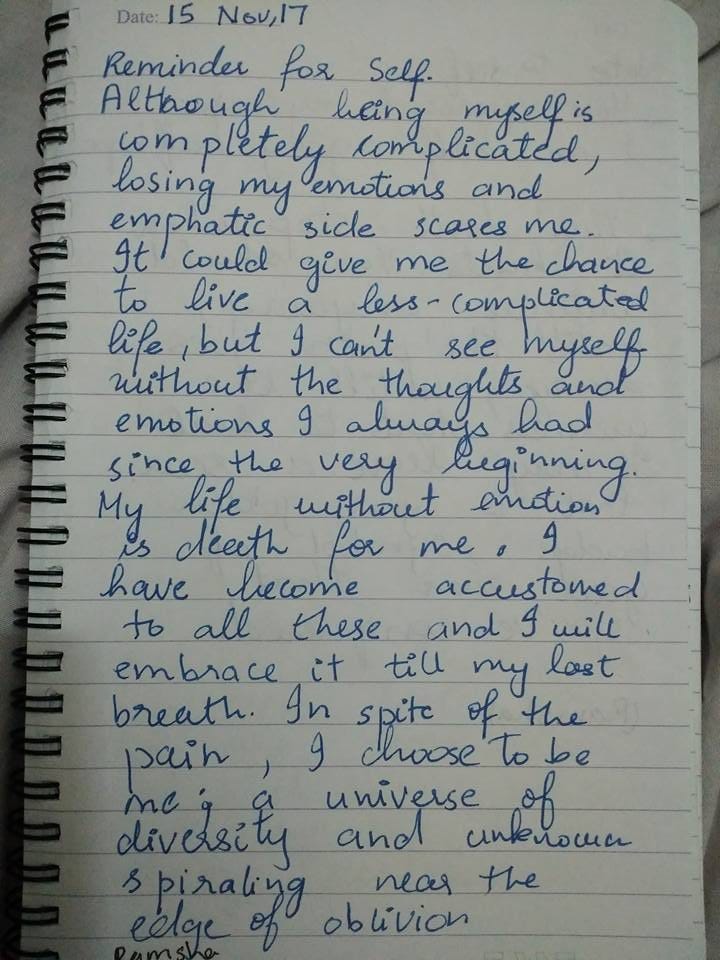 Date: 15 Nov,17
Reminder for Self.
Although being myself is
completely complicated,
losing my emotions and
emphatic side scares me.
It could give me the chance
to live a less-complicated
life, but I can't see myself
without the thoughts and
emotions I always had
since the very beginning.
My life without emotion
is death for me. I
have become accustomed
to all these and I will
embrace it till my last
breath. In spite of the
pain, I choose to be
me; a universe of
diversity and unknown
spiraling near the
edge of oblivion
Ramsha